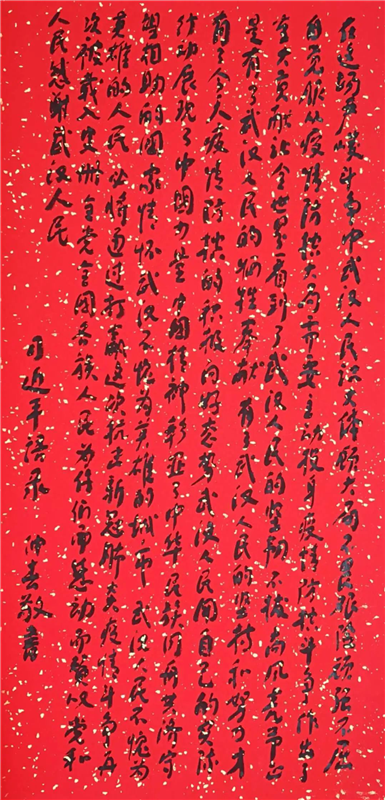 在这场严峻斗争中武汉人民识大体顾大局不畏艰险顽强不屈
自觉服从疫情防控大局需要主动投身疫情防控斗争作出了
重大贡献让全世界看到了武汉人民的坚韧不拔高风亮节正
是有了武汉人民的牺牲奉献有了武汉人民的坚持和努力才
有了今天疫情防控的积极向好态势武汉人民用自己的实际
行动展现了中国力量中国精神彰显了中华民族同舟共济守
望相助的國家情怀武汉不愧为英雄的城市武汉人民不愧为
英雄的人民必将通过打赢这次抗击新冠肺炎疫情斗争再
次被载入史册全党全国各族人民为你们而感动而赞叹党和
人民感谢武汉人民
习近平语录 仲春敬書